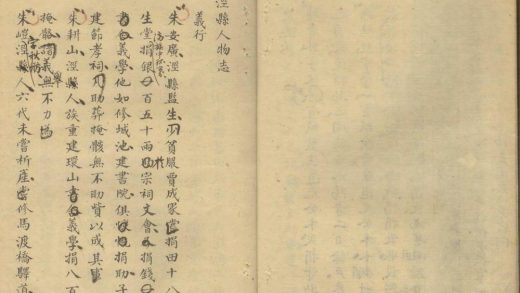 涇縣人物志
義行
朱安廣涇縣監生少貧服賈成家嘗捐田十八
生堂捐銀百五十兩宗祠文會捐錢
義學他如修城池建書院俱捐助子
建節孝祠助葬掩骸無不助貲以成其事
朱耕山涇縣人族重建環山書義學捐八百
掩骼諸義舉無不力
朱涇縣人六代未嘗析產嘗修馬渡橋驛道